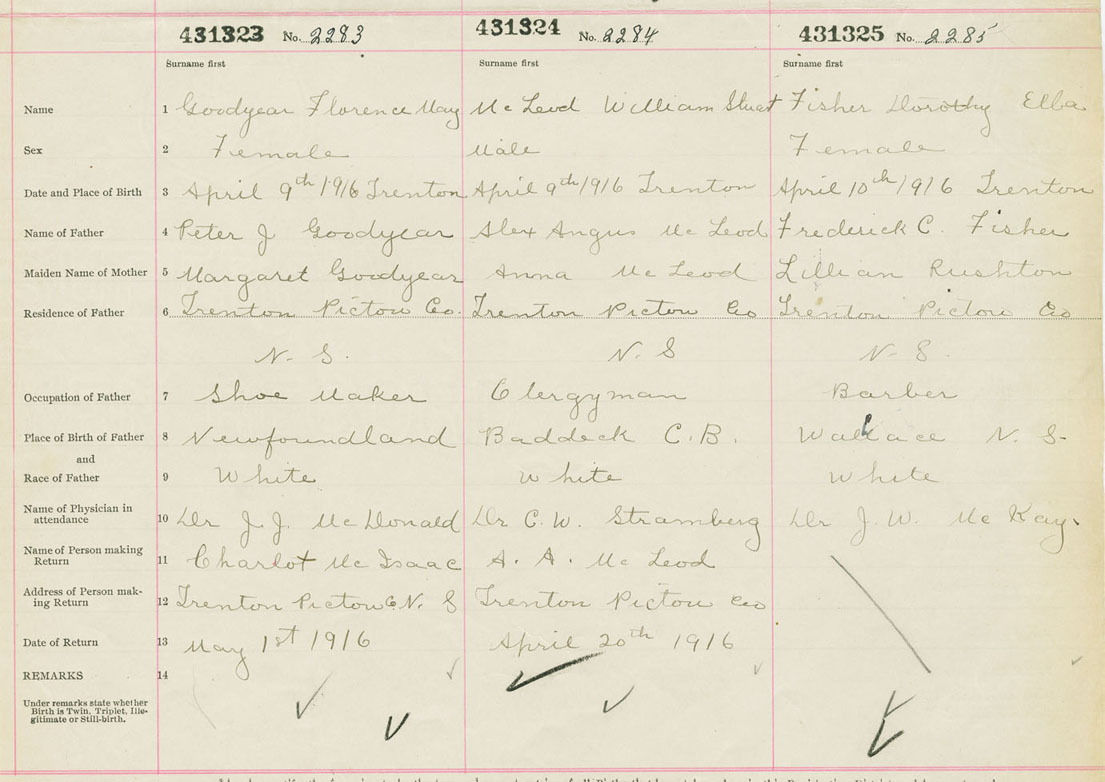 431323 No. 2283 431324 No. 2284 431325 No. 2285
Surname first Surname first Surname first
Name 1 Goodyear Florence May Mc Leod William Stuart Fisher Dorothy Elba
Sex 2 Female Male Female
Date and Place of Birth 3 April 9th 1916 Trenton April 9th 1916 Trenton April 10th 1916 Trenton
Name of Father 4 Peter J Goodyear Alex Angus Mc Leod Frederick C. Fisher
Maiden Name of Mother 5 Margaret Goodyear Anna Mc Leod Lillian Rushton
Residence of Father 6 Trenton Pictou Co. Trenton Pictou Co Trenton Pictou Co
N. S. N. S N. S.
Occupation of Father 7 Shoe Maker Clergyman Barber
Place of Birth of Father 8 Newfoundland Baddeck C.B. Wallace N. S.
and
Race of Father 9 White White White
Name of Physician in
attendance 10 Dr J. J. Mc Donald Dr C. W. Stramberg Dr J. W. Mc Kay.
Name of Person making
Return 11 Charlot Mc Isaac A. A. Mc Leod
Address of Person mak-
ing Return 12 Trenton Pictou C N. S Trenton Pictou Co
Date of Return 13 May 1st 1916 April 20th 1916
REMARKS 14
Under remarks state whether
Birth is Twin, Triplet, Ille-
gitimate or Still-birth.